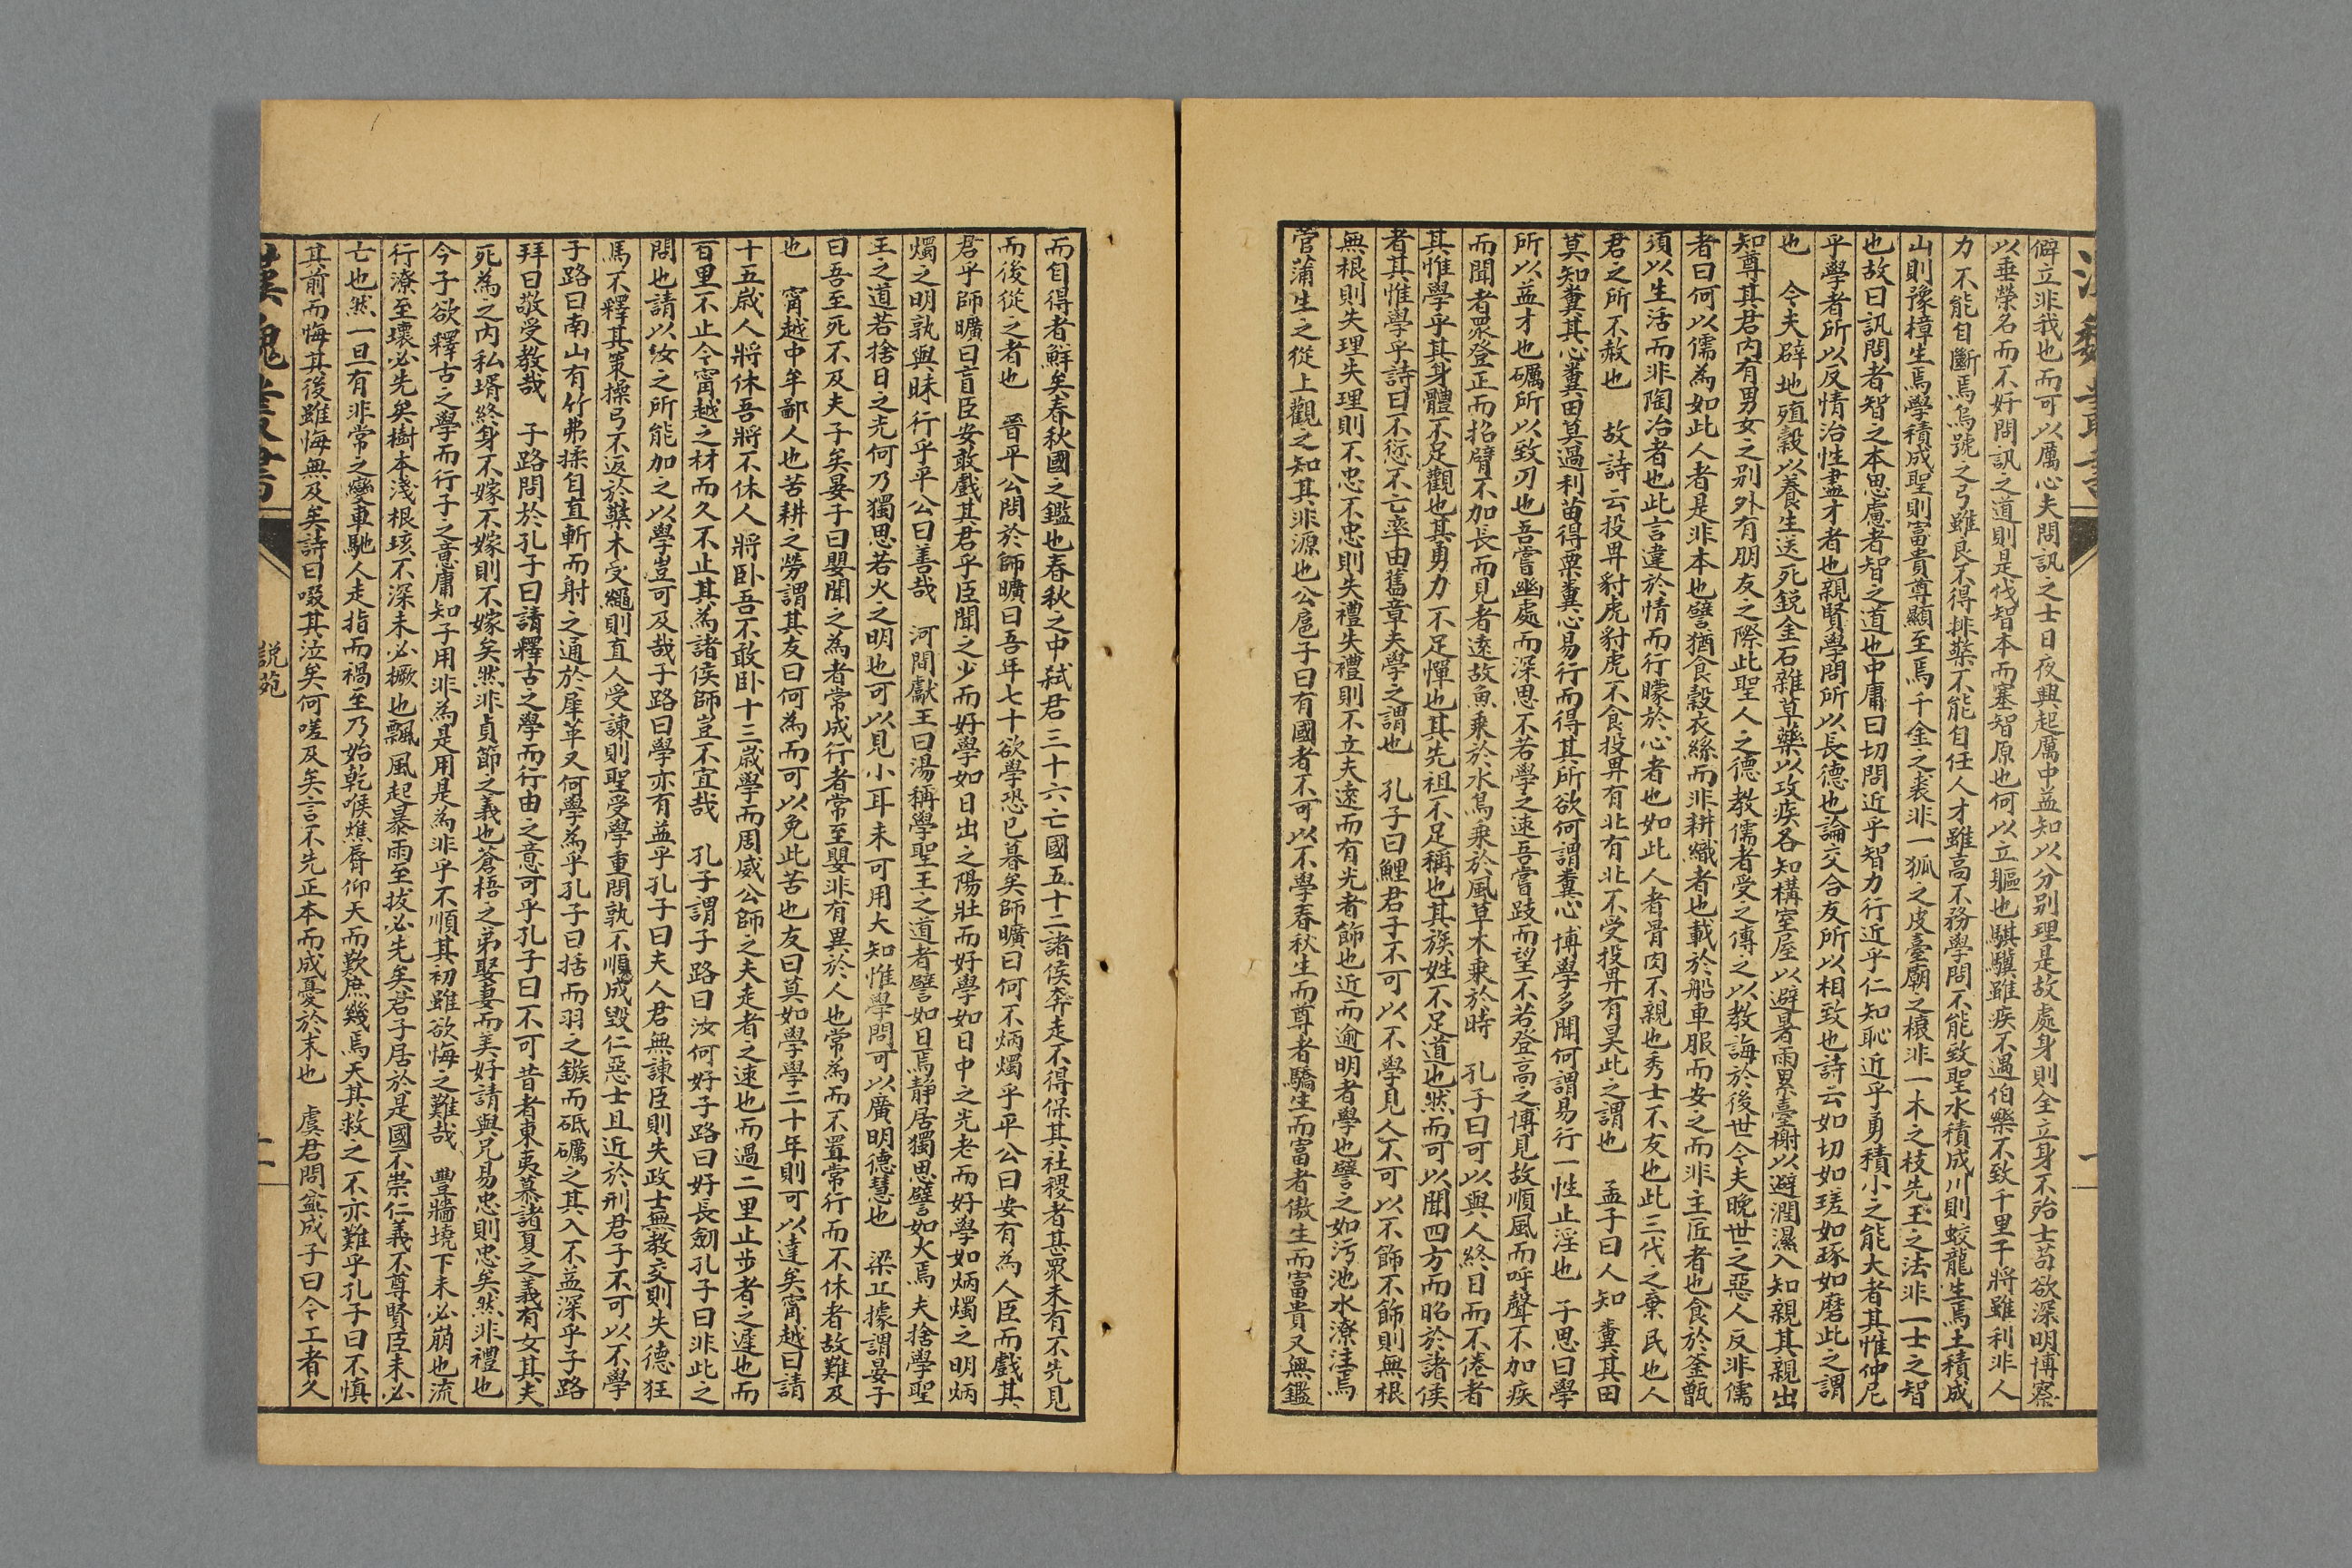 漢魏叢書
僻立非我也而可以厲心夫問訊之士日夜興起厲中益知以分别理是故處身則全立身不殆士苟欲深明博察
以垂榮名而不好問訊之道則是伐智本而塞智原也何以立軀也騏驥雖疾不遇伯樂不致千里干將雖利非人
力不能自斷焉烏號之弓雖良不得排檠不能自任人才雖高不務學問不能致聖水積成川則蛟龍生焉土積成
山則豫樟生焉學積成聖則富貴尊顯至焉千金之裘非一狐之皮臺廟之榱非一木之枝先王之法非一士之智
也故曰訊問者智之本思慮者智之道也中庸曰切問近乎智力行近乎仁知恥近乎勇積小之能大者其惟仲尼
乎學者所以反情治性盡才者也親賢學問所以長德也論交合友所以相致也詩云如切如瑳如琢如磨此之謂
也　今夫辟地殖穀以養生送死銳金石雜草藥以攻疾各知構室屋以避暑雨累臺榭以避潤濕入知親其親出
知尊其君内有男女之别外有朋友之際此聖人之德教儒者受之傳之以教誨於後世今夫晚世之惡人反非儒
者曰何以儒為如此人者是非本也譬猶食穀衣絲而非耕織者也載於船車服而安之而非主匠者也食於釜甑
須以生活而非陶冶者也此言違於情而行矇於心者也如此人者骨肉不親也秀士不友也此三代之棄民也人
君之所不赦也　故詩云投畀豺虎豺虎不食投畀有北有北不受投畀有昊此之謂也　孟子曰人知　糞其田
莫知糞其心糞田莫過利苗得粟糞心易行而得其所欲何謂糞心博學多聞何謂易行一性止淫也　子思曰學
所以益才也礪所以致刃也吾嘗幽處而深思不若學之速吾嘗跂而望不若登高之博見故順風而呼聲不加疾
而聞者衆登丘而招臂不加長而見者遠故魚乘於水鳥乘於風草木乘於時　孔子曰可以與人終日而不倦者
其惟學乎其身體不足觀也其勇力不足憚也其先祖不足稱也其族姓不足道也然而可以聞四方而昭於諸侯
者其惟學乎詩曰不愆不亡率由舊章夫學之謂也　孔子曰鯉君子不可以不學見人不可以不飾不飾則無根
無根則失理失理則不忠不忠則失禮失禮則不立夫遠而有光者飾也近而逾明者學也譬之如汚池水潦注焉
菅蒲生之從上觀之知其非源也公扈子曰有國者不可以不學春秋生而尊者驕生而富者傲生而富貴又無鑑
而自得者鮮矣春秋國之鑑也春秋之中弑君三十六亡國五十二諸侯奔走不得保其社稷者甚衆未有不先見
而後從之者也　晉平公問於師曠曰吾年七十欲學恐已暮矣師曠曰何不炳燭乎平公曰安有為人臣而戲其
君乎師曠曰盲臣安敢戲其君乎臣聞之少而好學如日出之陽壯而好學如日中之光老而好學如炳燭之明炳
燭之明孰與昧行乎平公曰善哉　河間獻王曰湯稱學聖王之道者譬如日焉靜居獨思譬如火焉夫捨學聖
王之道若捨日之光何乃獨思若火之明也可以見小耳未可用大知惟學問可以廣明德慧也　梁丘據謂晏子
曰吾至死不及夫子矣晏子曰嬰聞之為者常成行者常至嬰非有異於人也常為而不置常行而不休者故難及
也　甯越中牟鄙人也苦耕之勞謂其友曰何為而可以免此苦也友曰莫如學學二十年則可以達矣甯越曰請
十五歲人將休吾將不休人將卧吾不敢卧十三歲學而周威公師之夫走者之速也而過二里止步者之遲也而
百里不止今甯越之材而久不止其為諸侯師豈不宜哉　孔子謂子路曰汝何好子路曰好長劒孔子曰非此之
問也請以汝之所能加之以學豈可及哉子路曰學亦有益乎孔子曰夫人君無諫臣則失政士無教交則失德狂
馬不釋其策操弓不返於檠木受繩則直人受諫則聖受學重問孰不順成毁仁惡士且近於刑君子不可以不學
子路曰南山有竹弗揉自直斬而射之通於犀革又何學為乎孔子曰括而羽之鏃而砥礪之其入不益深乎子路
拜曰敬受教哉　子路問於孔子曰請釋古之學而行由之意可乎孔子曰不可昔者東夷慕諸夏之義有女其夫
死為之内私壻終身不嫁不嫁則不嫁矣然非貞節之義也蒼梧之弟娶妻而美好請與兄易忠則忠矣然非禮也
今子欲釋古之學而行子之意庸知子用非為是用是為非乎不順其初雖欲悔之難哉　豐牆墝下未必崩也流
行潦至壞必先矣樹本淺根垓不深未必橛也飄風起暴雨至拔必先矣君子居於是國不崇仁義不尊賢臣未必
亡也然一旦有非常之變車馳人走指而禍至乃始乾喉燋脣仰天而歎庶幾焉天其救之不亦難乎孔子曰不慎
其前而悔其後雖悔無及矣詩曰啜其泣矣何嗟及矣言不先正本而成憂於末也　虞君問盆成子曰今工者久
漢魏叢書
說苑